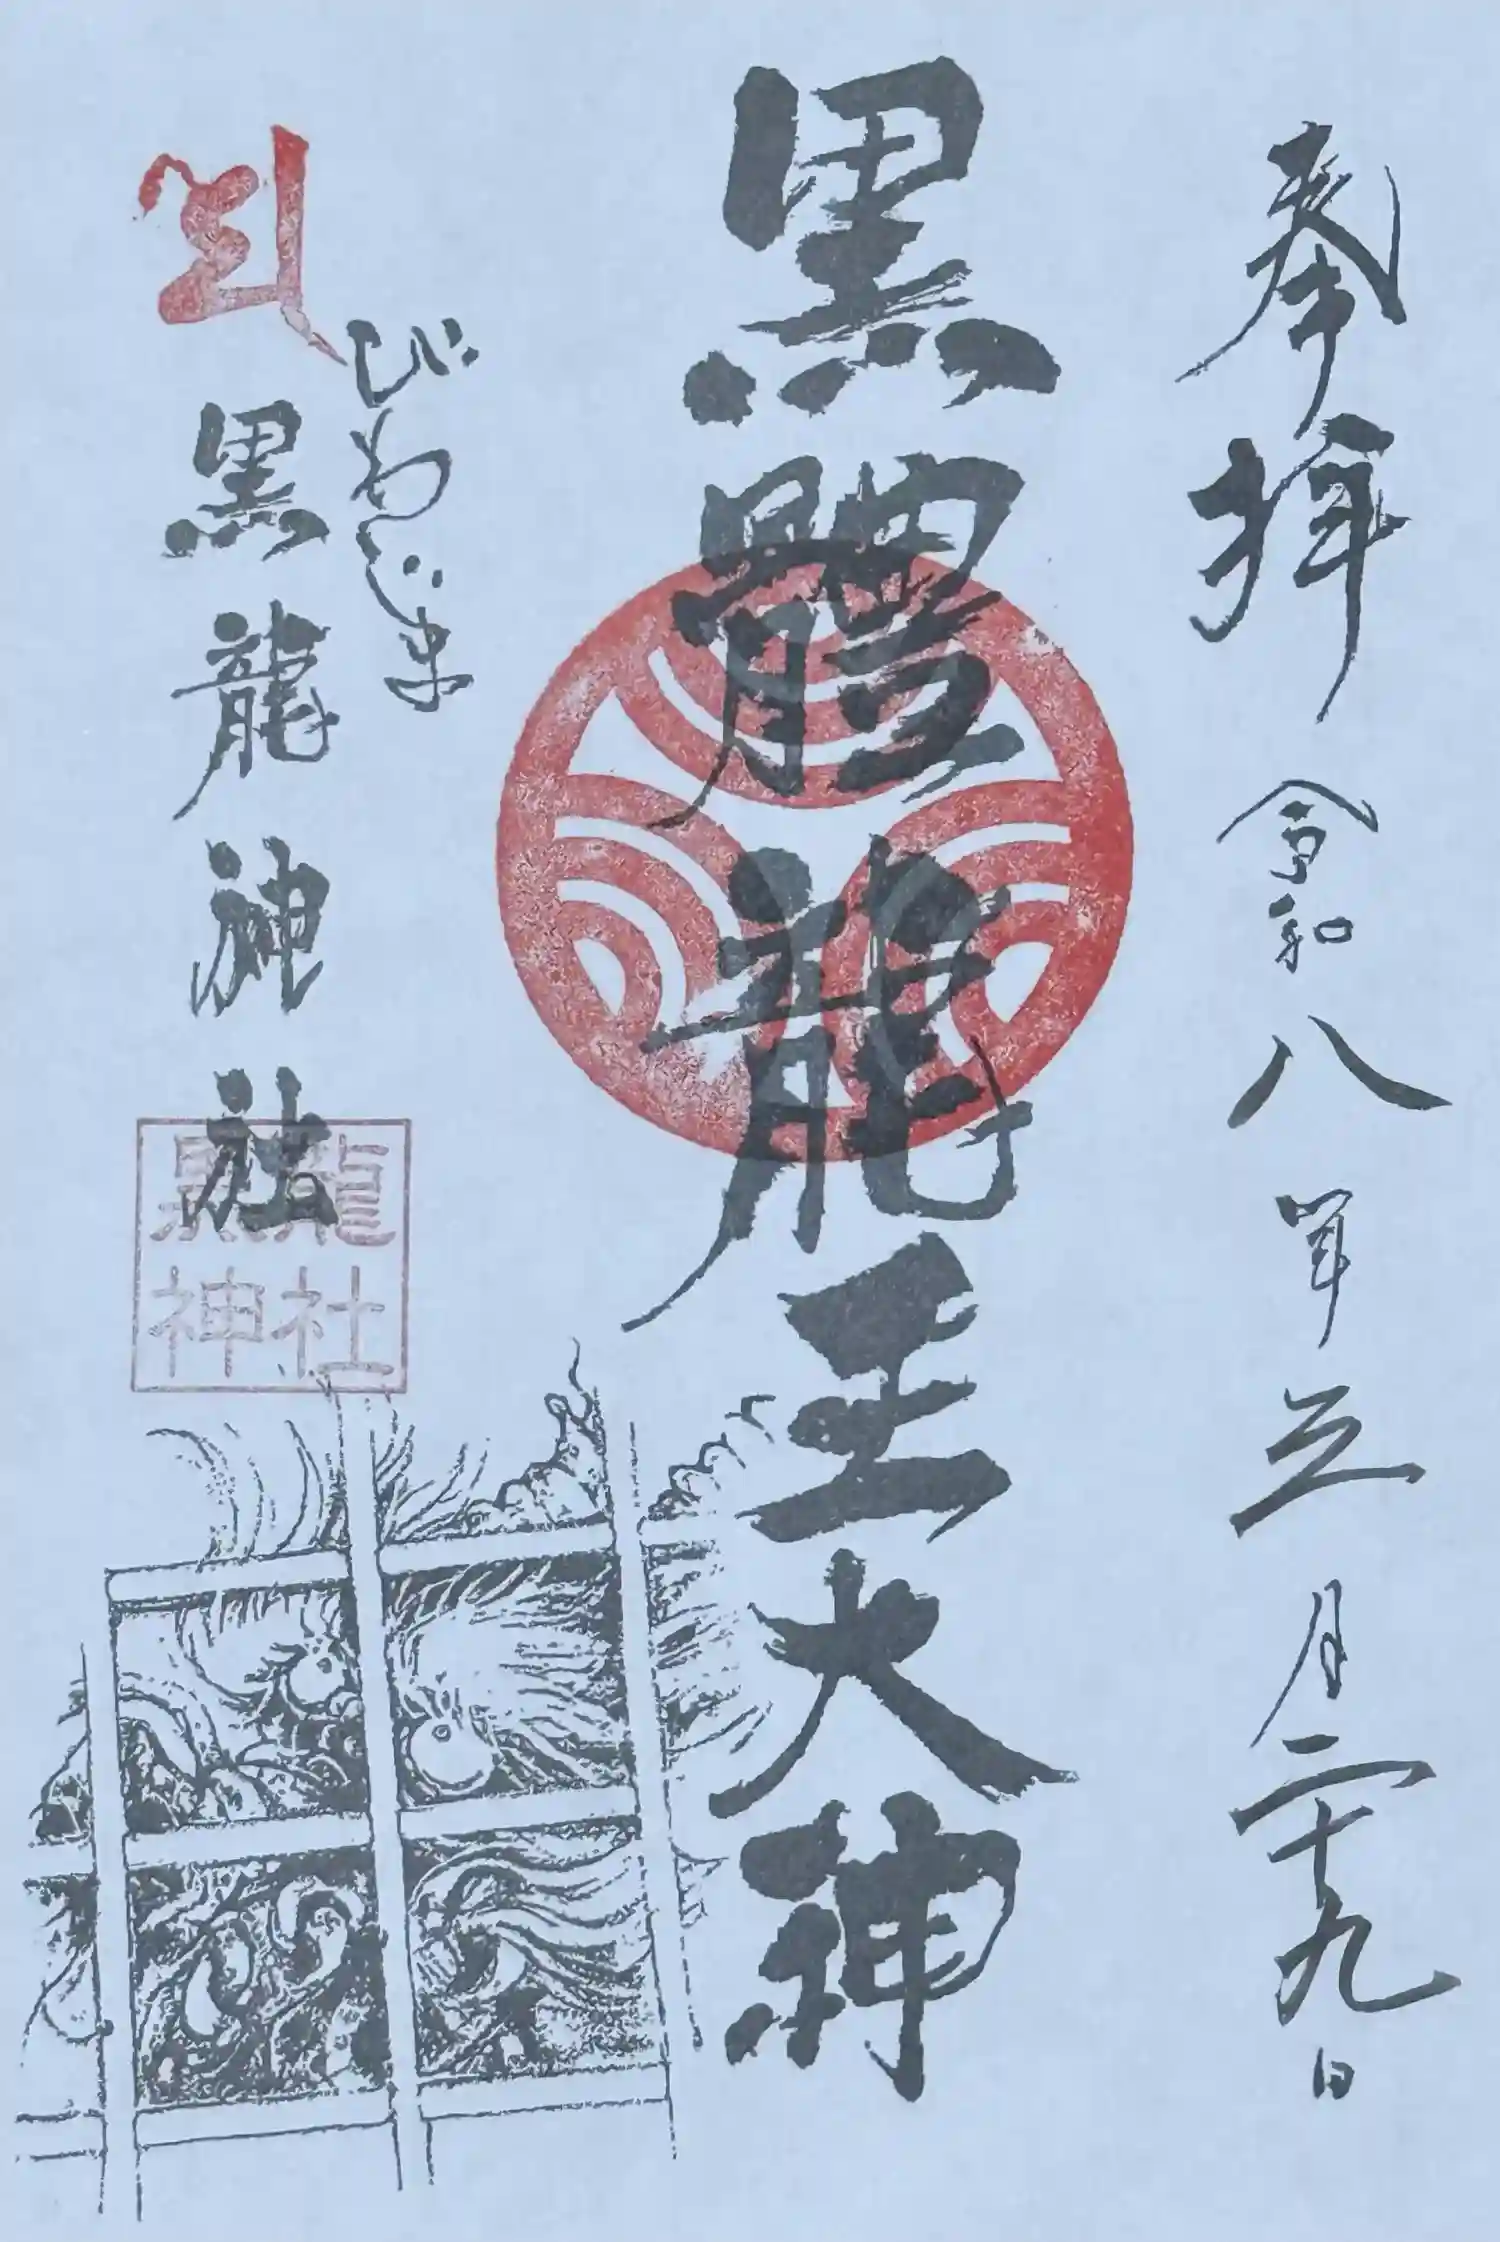 奉拝 令和八年五月二十九日
黒體龍王大神
びわじま
黒龍神社
黒龍
神社